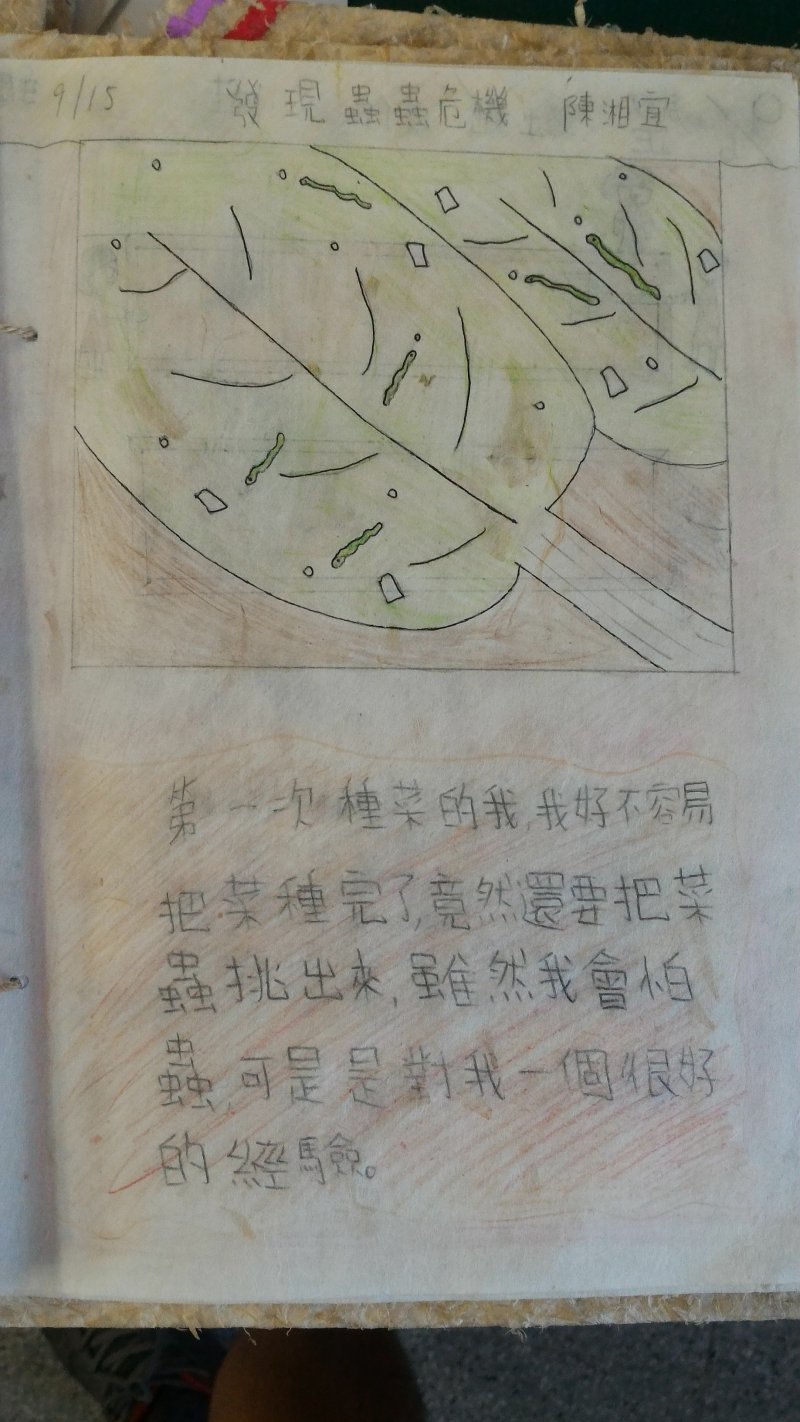 9/15 發現蟲蟲危機 陳湘宜
第一次種菜的我,我好不容易
把菜種完了,竟然還要把菜
蟲挑出來,雖然我會怕
蟲,可是是對我一個很好
的經驗。